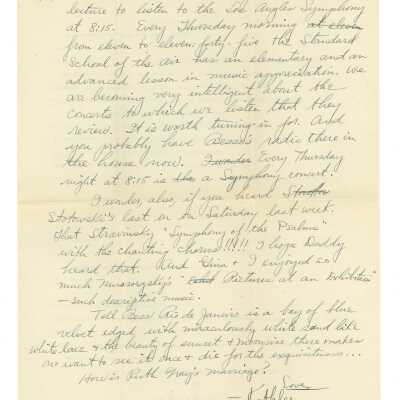 lecture to listen to the Los Angeles Symphony
at 8:15. Every Thursday morning at eleven
from eleven to eleven-forty-five the Standard
School of the Air has an elementary and an
advanced lesson in music appreciation. We
are becoming very intelligent about the
concerts to which we listen that they
review. It is worth turning in for. And
you probably have Besse's radio there in
the house now. I wonder Every Thursday
night at 8:15 is the a Symphony concert.
I wonder, also, if you heard
Stokowski's last on Saturday last week.
that Stravinsky "Symphony of the Psalms"
with the chanting chorus!!!!! I hope Daddy
heard that. And Gina & I enjoyed so
much Mussorgsky's "Pictures at an Exhibition"
– such descriptive music.
Tell Besse Rio de Janeiro is a bay of blue
velvet edged with miraculously white sand like
white lace & the beauty of sunset & moonrise there makes
one want to see it once & die for the exquisiteness...
How is Ruth Gray's marriage?
Love